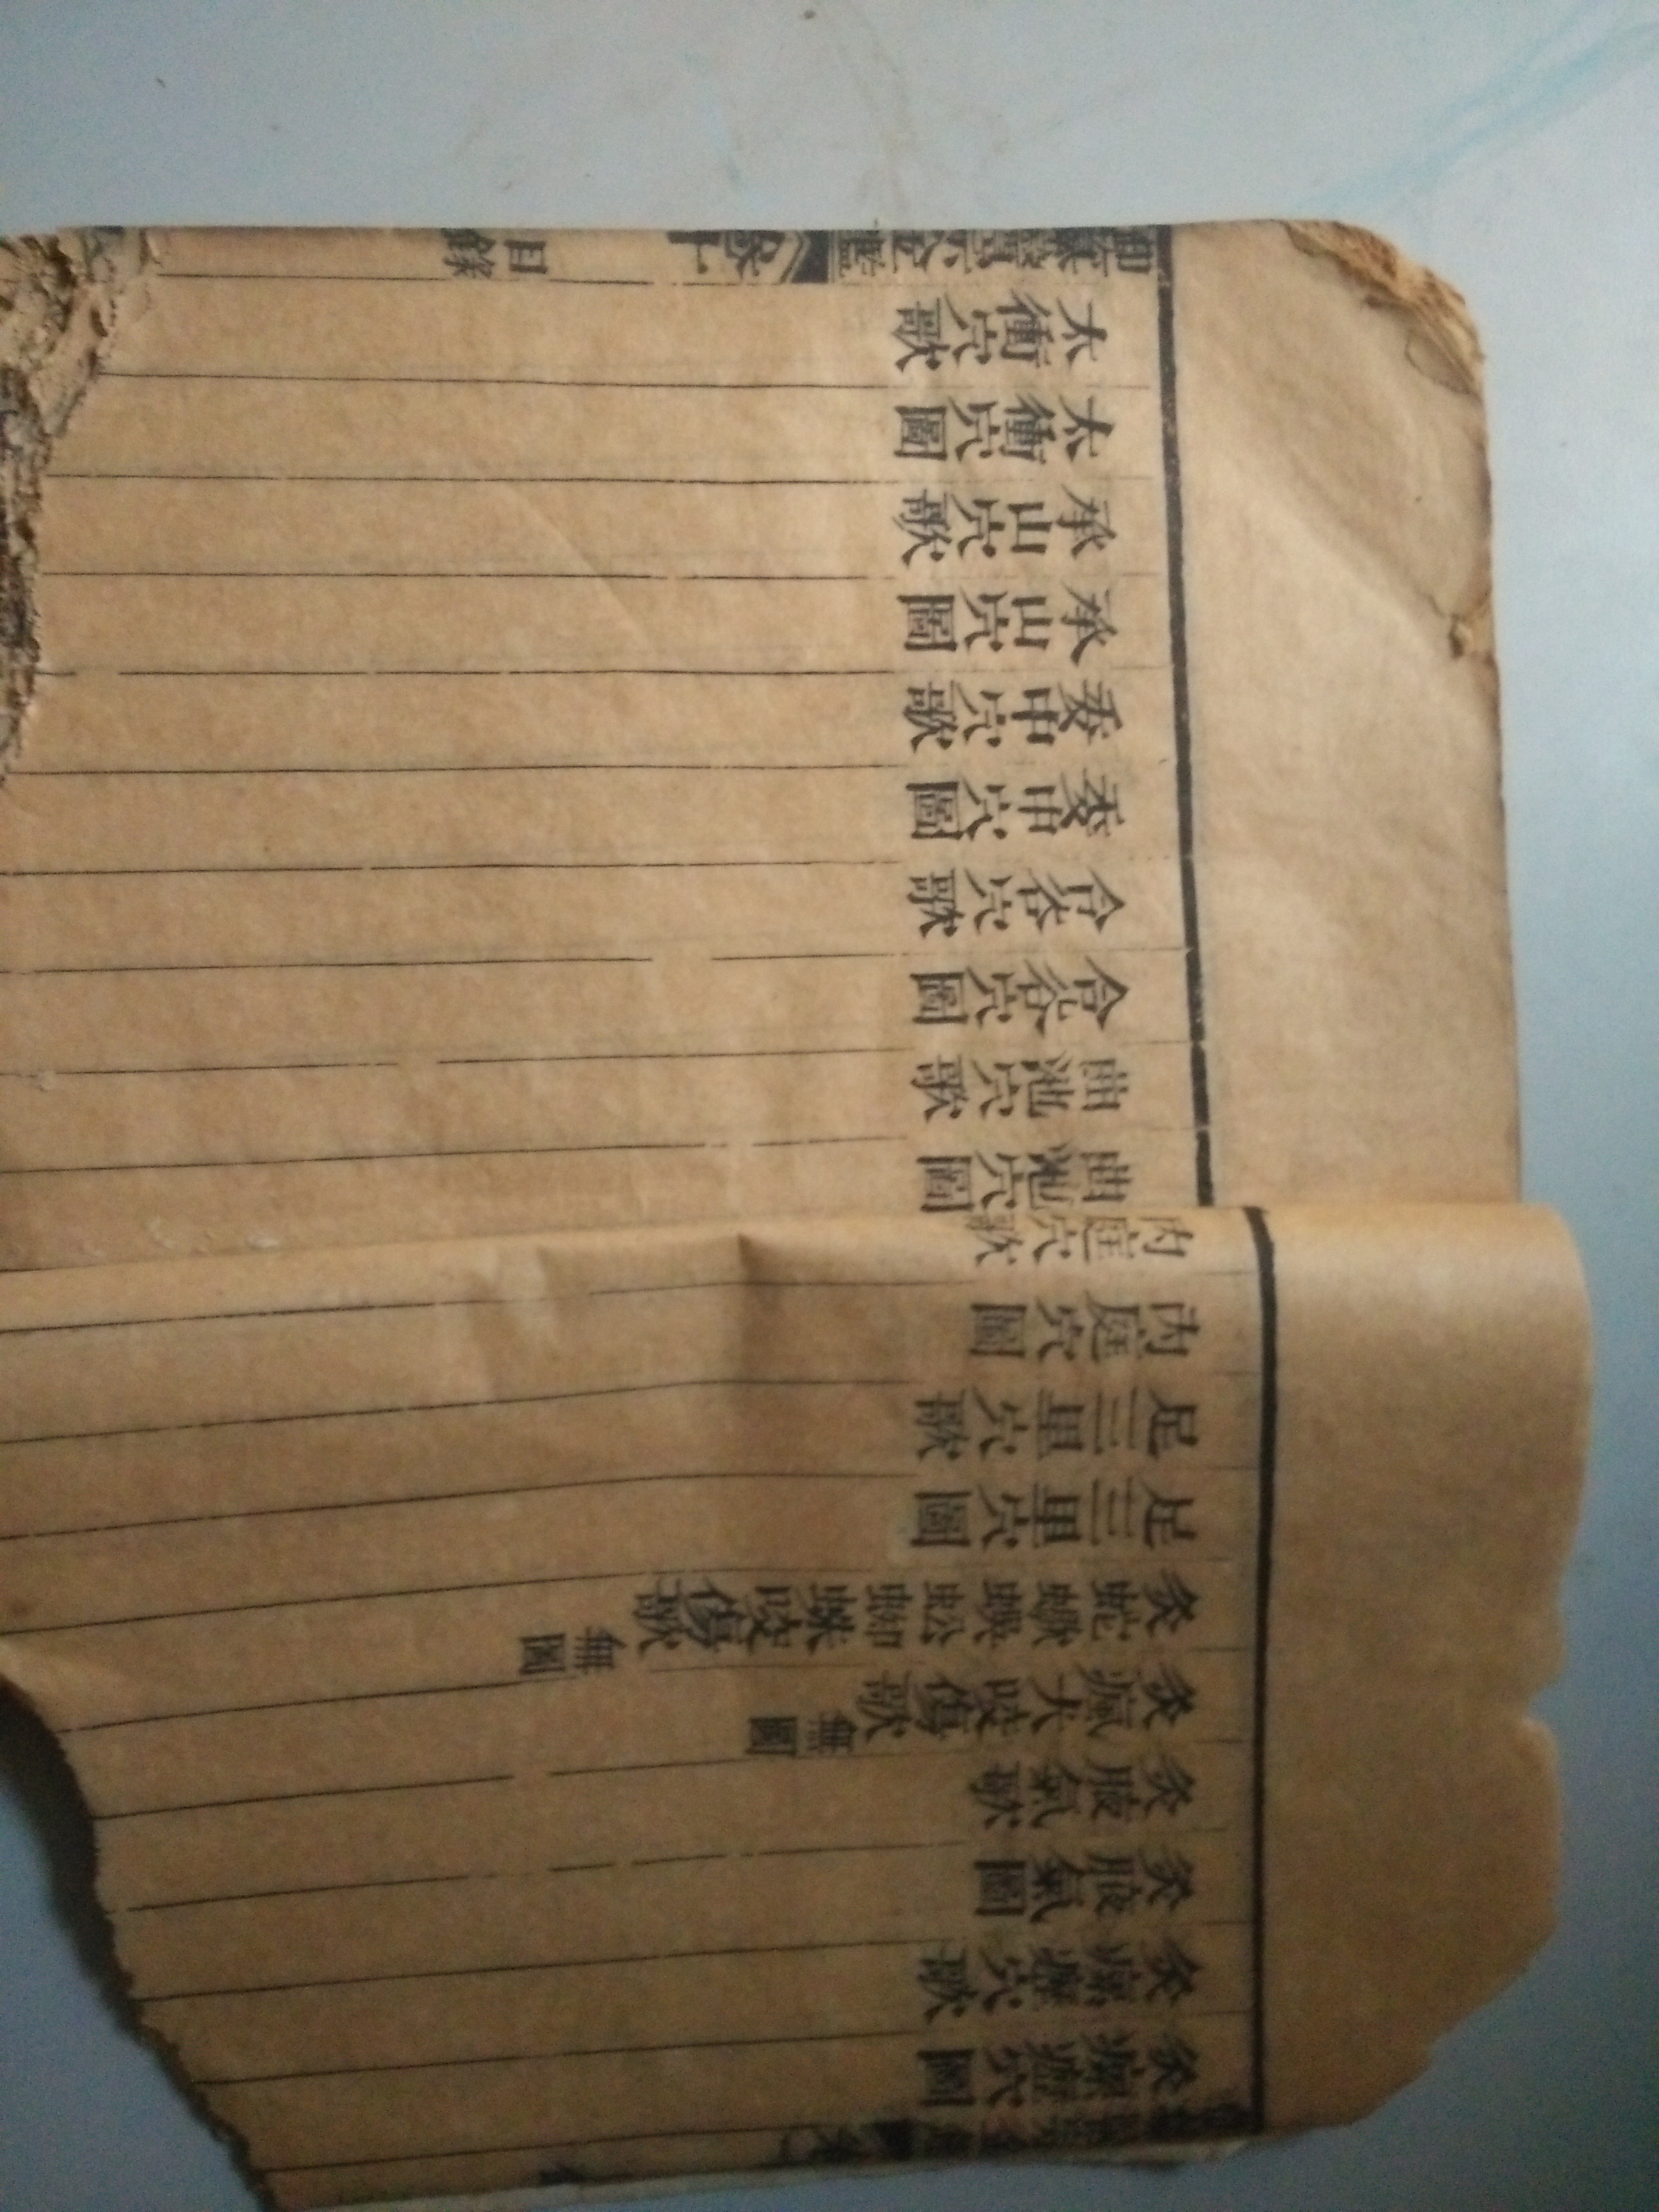 灸瘰癧穴圖
灸瘰癧穴歌
灸腋氣圖
灸腋氣歌
灸瘋犬咬傷歌無圖
灸蛇蠍蜈蚣蜘蛛咬傷歌無圖
足三里穴圖
足三里穴歌
內庭穴圖
內庭穴歌
曲池穴圖
曲池穴歌
合谷穴圖
合谷穴歌
委中穴圖
委中穴歌
承山穴圖
承山穴歌
太衝穴圖
太衝穴歌
御纂醫宗金鑑 目錄